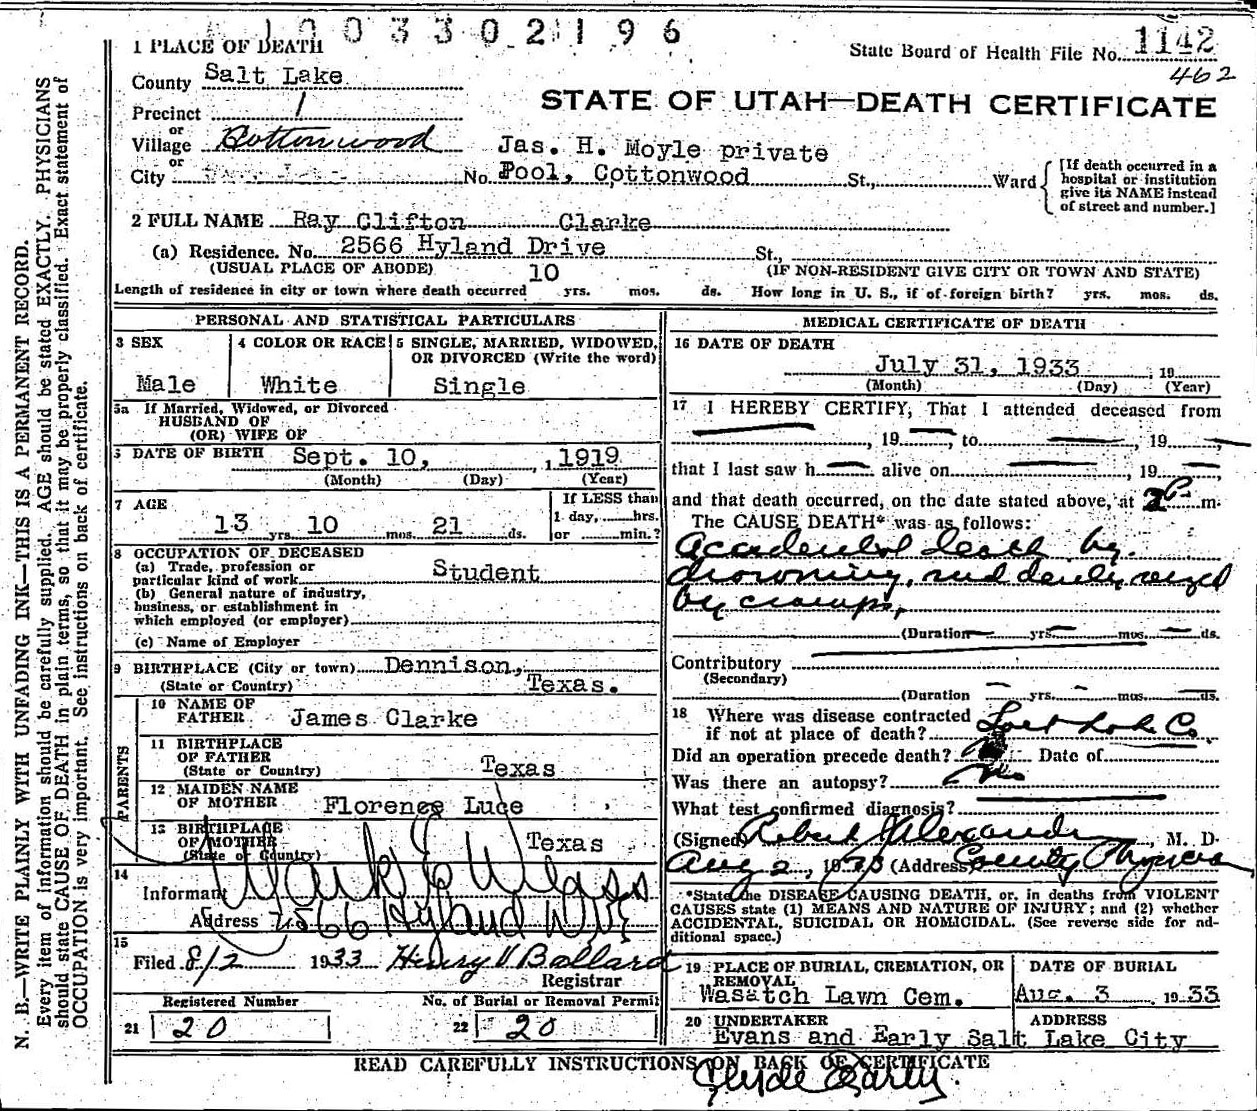 1003302196
1 PLACE OF DEATH
State Board of Health File No. 1142
462
County Salt Lake
STATE OF UTAH—DEATH CERTIFICATE
Precinct 1
or
Village Cottonwood
Jas. H. Moyle private
or
City No. Pool, Cottonwood St., Ward
[If death occurred in a
hospital or institution
give its NAME instead
of street and number.]
2 FULL NAME Ray Clifton Clarke
(a) Residence. No. 2566 Hyland Drive St.,
(USUAL PLACE OF ABODE) (IF NON-RESIDENT GIVE CITY OR TOWN AND STATE)
Length of residence in city or town where death occurred 10 yrs. mos. ds. How long in U. S., if of foreign birth? yrs. mos. ds.
PERSONAL AND STATISTICAL PARTICULARS
3 SEX
Male
4 COLOR OR RACE
White
5 SINGLE, MARRIED, WIDOWED,
OR DIVORCED (Write the word)
Single
5a If Married, Widowed, or Divorced
HUSBAND OF
(OR) WIFE OF
6 DATE OF BIRTH Sept. 10, , 1919
(Month) (Day) (Year)
7 AGE
13 yrs. 10 mos. 21 ds.
If LESS than
1 day, hrs.
or min.?
8 OCCUPATION OF DECEASED
(a) Trade, profession or
particular kind of work Student
(b) General nature of industry,
business, or establishment in
which employed (or employer)
(c) Name of Employer
9 BIRTHPLACE (City or town) Dennison,
(State or Country) Texas.
PARENTS
10 NAME OF
FATHER James Clarke
11 BIRTHPLACE
OF FATHER
(State or Country) Texas
12 MAIDEN NAME
OF MOTHER Florence Luce
13 BIRTHPLACE
OF MOTHER
(State or Country) Texas
14
Informant
Address 2566 Hyland Drive
15
Filed 8/2 1933 Henry V Ballard
Registrar
Registered Number
21 20
No. of Burial or Removal Permit
22 20
MEDICAL CERTIFICATE OF DEATH
16 DATE OF DEATH
July 31, 1933 , 19
(Month) (Day) (Year)
17 I HEREBY CERTIFY, That I attended deceased from
, 19 , to , 19 ,
that I last saw h alive on , 19
and that death occurred, on the date stated above, at 2 P m.
The CAUSE DEATH* was as follows:
Accidental death by
drowning, suddenly seized
by cramps,
(Duration yrs. mos. ds.
Contributory
(Secondary)
(Duration yrs. mos. ds.
18 Where was disease contracted
if not at place of death? Salt Lake Co.
Did an operation precede death? Date of
Was there an autopsy? No
What test confirmed diagnosis?
(Signed) Robert J Alexander , M. D.
Aug 2, 1933 (Address) County Physician
*State the DISEASE CAUSING DEATH, or, in deaths from VIOLENT
CAUSES state (1) MEANS AND NATURE OF INJURY; and (2) whether
ACCIDENTAL, SUICIDAL OR HOMICIDAL. (See reverse side for ad-
ditional space.)
19 PLACE OF BURIAL, CREMATION, OR
REMOVAL
Wasatch Lawn Cem.
DATE OF BURIAL
Aug. 3 1933
20 UNDERTAKER ADDRESS
Evans and Early Salt Lake City
READ CAREFULLY INSTRUCTIONS ON BACK OF CERTIFICATE
Clyde Early.
N. B.—WRITE PLAINLY WITH UNFADING INK—THIS IS A PERMANENT RECORD.
Every item of information should be carefully supplied. AGE should be stated EXACTLY. PHYSICIANS
should state CAUSE OF DEATH in plain terms, so that it may be properly classified. Exact statement of
OCCUPATION is very important. See instructions on back of certificate.